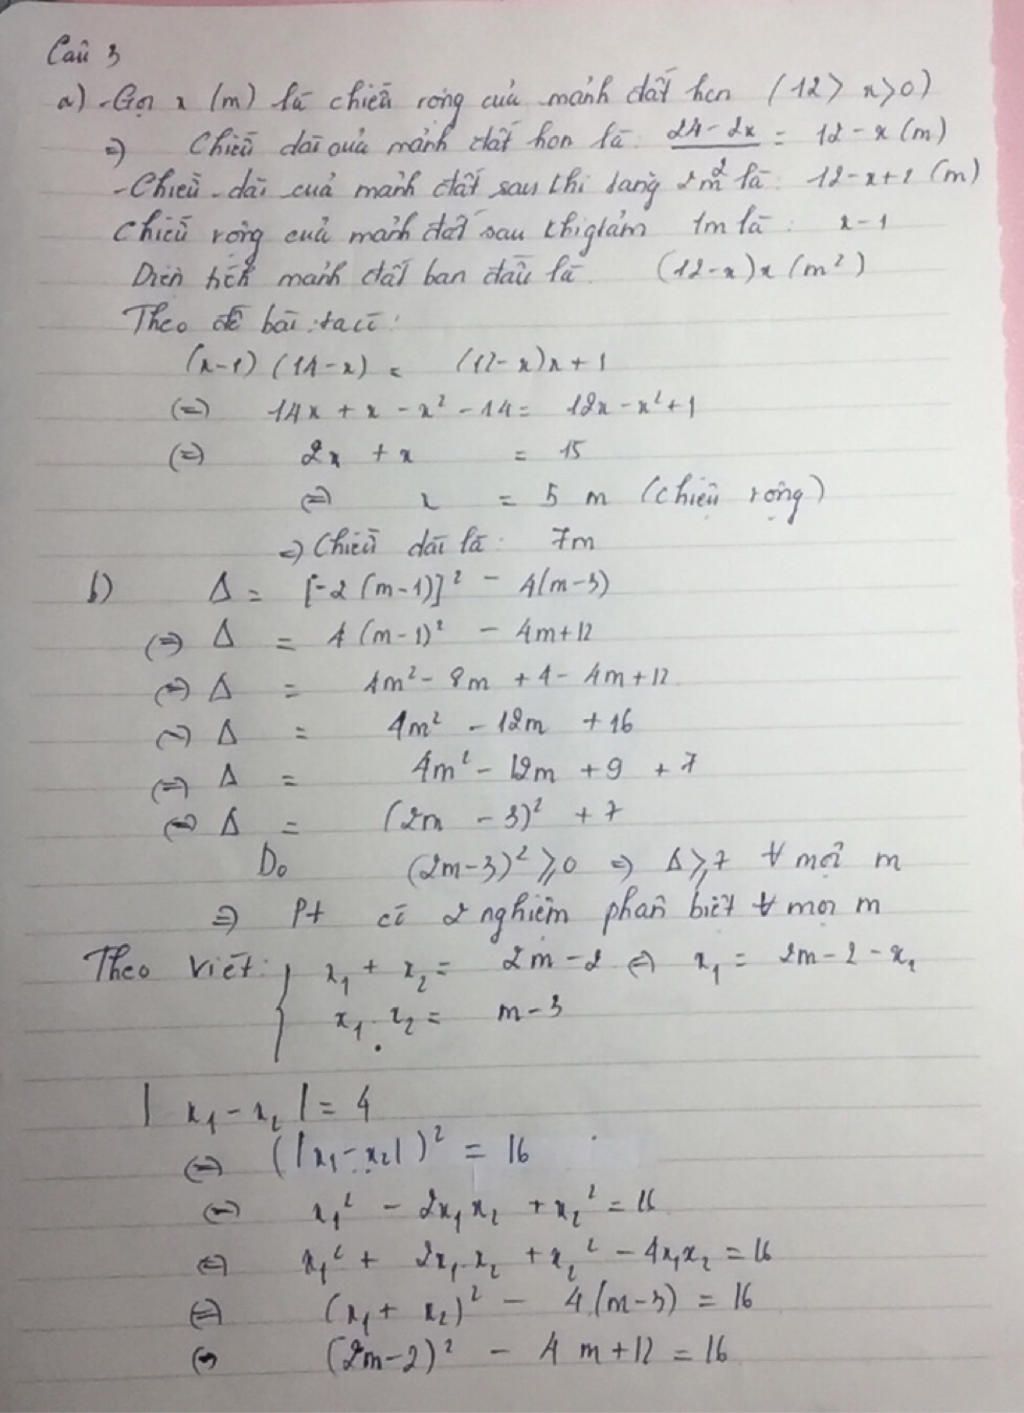 Câu 3
a) - Gọi x (m) là chiều rộng của mảnh đất hcn (12 > x > 0)
=> Chiều dài của mảnh đất hcn là: 24-2x = 12 - x (m)
- Chiều dài của mảnh đất sau khi tăng 2m là: 12-x+2 (m)
Chiều rộng của mảnh đất sau khi giảm 1m là: x-1
Diện tích mảnh đất ban đầu là (12-x)x (m²)
Theo đề bài ta có:
(x-1) (14-x) = (12-x)x + 1
<=> 14x + x - x² - 14 = 12x - x² + 1
<=> 2x + x = 15
<=> x = 5 m (chiều rộng)
=> Chiều dài là: 7m
b) Δ = [-2 (m-1)]² - 4(m-3)
<=> Δ = 4 (m-1)² - 4m+12
<=> Δ = 4m² - 8m + 4 - 4m + 12
<=> Δ = 4m² - 12m + 16
<=> Δ = 4m² - 12m + 9 + 7
<=> Δ = (2m - 3)² + 7
Do (2m-3)² ⩾ 0 => Δ ⩾ 7 ∀ mọi m
=> Pt có 2 nghiệm phân biệt ∀ mọi m
Theo Viét: { x₁ + x₂ = 2m - 2 <=> x₁ = 2m - 2 - x₂
x₁ . x₂ = m - 3
| x₁ - x₂ | = 4
<=> (|x₁ - x₂|)² = 16
<=> x₁² - 2x₁x₂ + x₂² = 16
<=> x₁² + 2x₁.x₂ + x₂² - 4x₁x₂ = 16
<=> (x₁ + x₂)² - 4.(m-3) = 16
<=> (2m-2)² - 4m+12 = 16